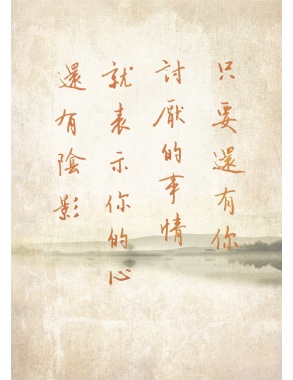 只要還有你
討厭的事情
就表示你的心
還有陰影